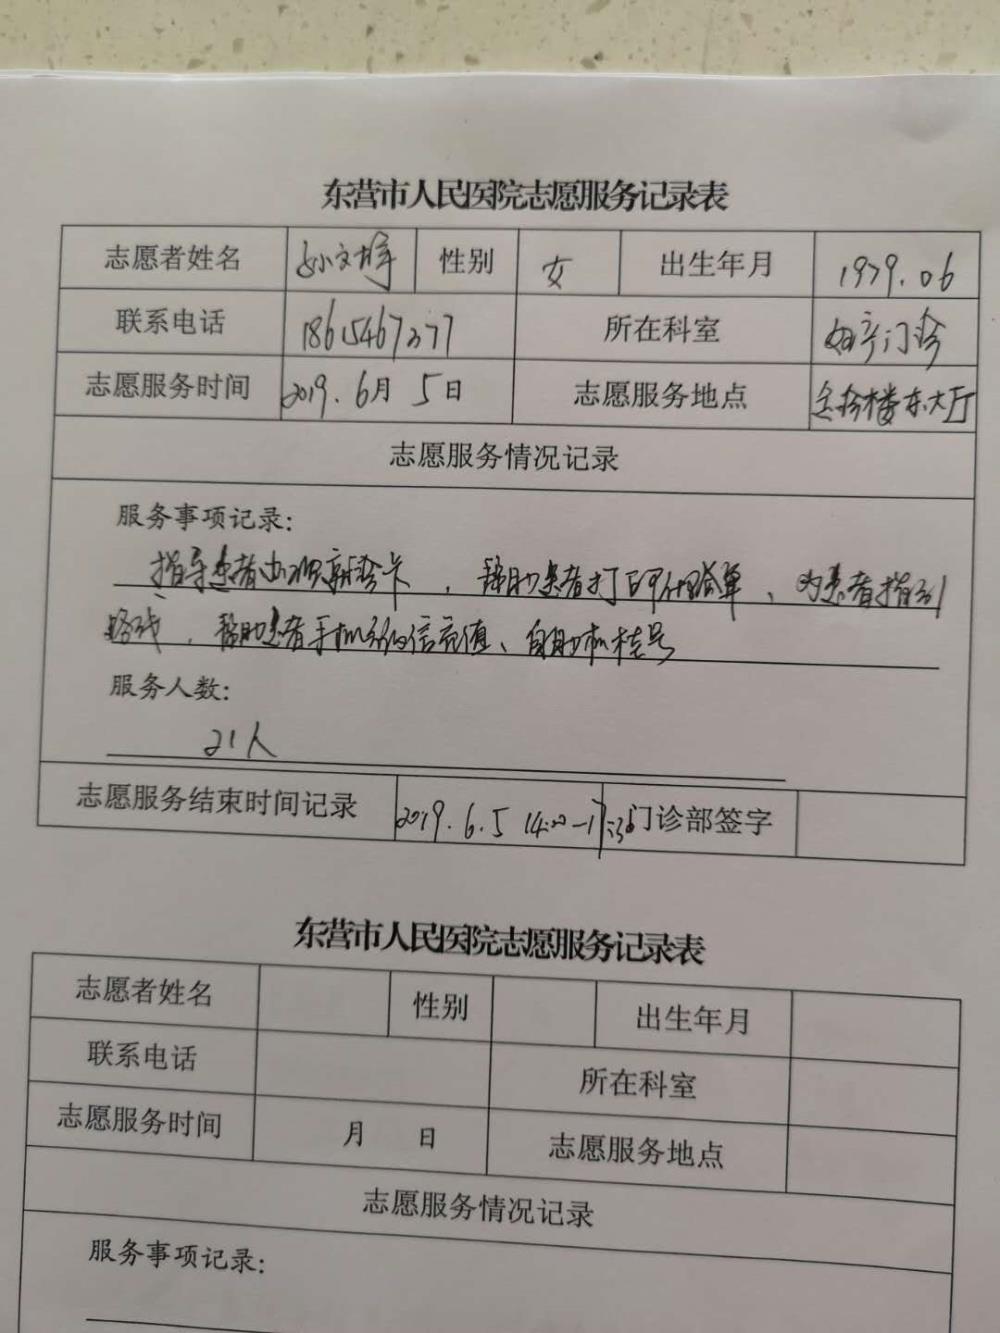 东营市人民医院志愿服务记录表
志愿者姓名 孙文梅 性别 女 出生年月 1979.06
联系电话 18615467377 所在科室 妇产门诊
志愿服务时间 2019.6月5日 志愿服务地点 楼东大厅
志愿服务情况记录
服务事项记录:
指导患者办理就诊卡,帮助患者打印化验单、为患者指引
路线,帮助患者手机微信充值、自助机挂号
服务人数:
21人
志愿服务结束时间记录 2019.6.5 14:00-17:30 门诊部签字
东营市人民医院志愿服务记录表
志愿者姓名 性别 出生年月
联系电话 所在科室
志愿服务时间 月 日 志愿服务地点
志愿服务情况记录
服务事项记录: